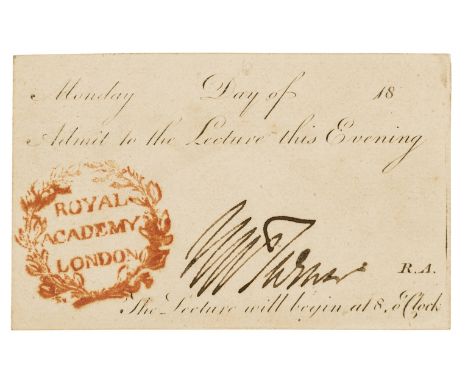 Monday Day of 18
Admit to the Lecture this Evening
ROYAL
ACADEMY
LONDON
JMW Turner
R.A.
The Lecture will begin at 8, o'Clock